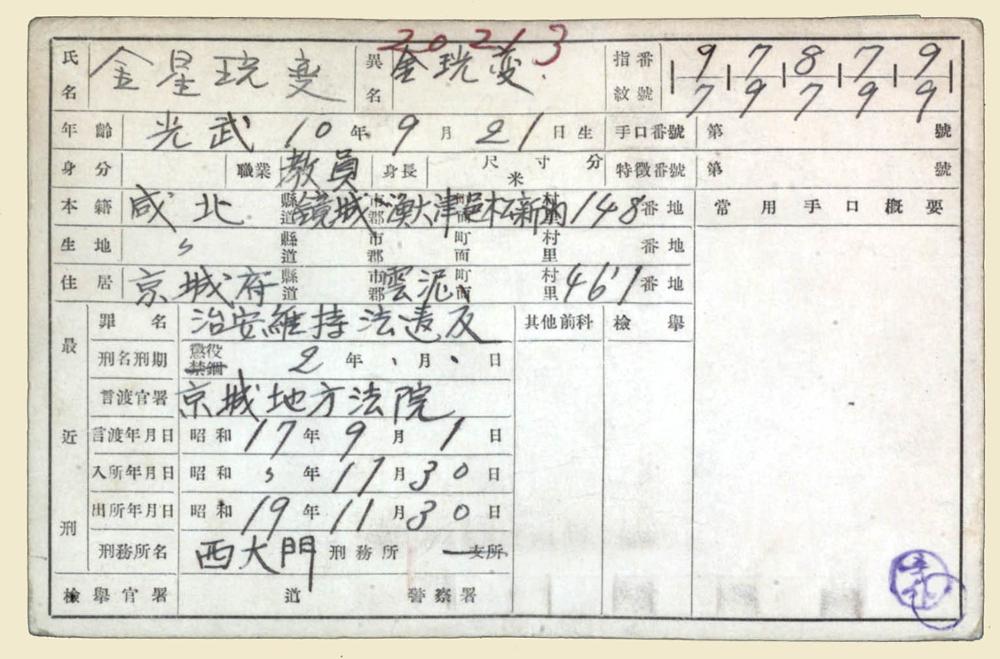 20213
氏名 金星珖變 異名 金珖變 指紋番號 9 7 8 7 9
7 9 7 9 9
年齡 光武10年9月21日生 手口番號 第 號
身分 職業 教員 身長 尺寸分 米 特徵番號 第 號
本籍 咸北 縣道 鏡城 市郡 漁大津邑松新 町面 村里 148番地 常用手口槪要
生地 〃 縣道 市郡 町面 村里 番地
住居 京城府 縣道 市郡 雲泥 町面 村里 461番地
最近刑 罪名 治安維持法違反 其他前科 檢擧
刑名刑期 懲役 禁錮 2年、月、日
言渡官署 京城地方法院
言渡年月日 昭和17年9月1日
入所年月日 昭和〃年11月30日
出所年月日 昭和19年11月30日
刑務所名 西大門刑務所 支所
檢擧官署 道 警察署